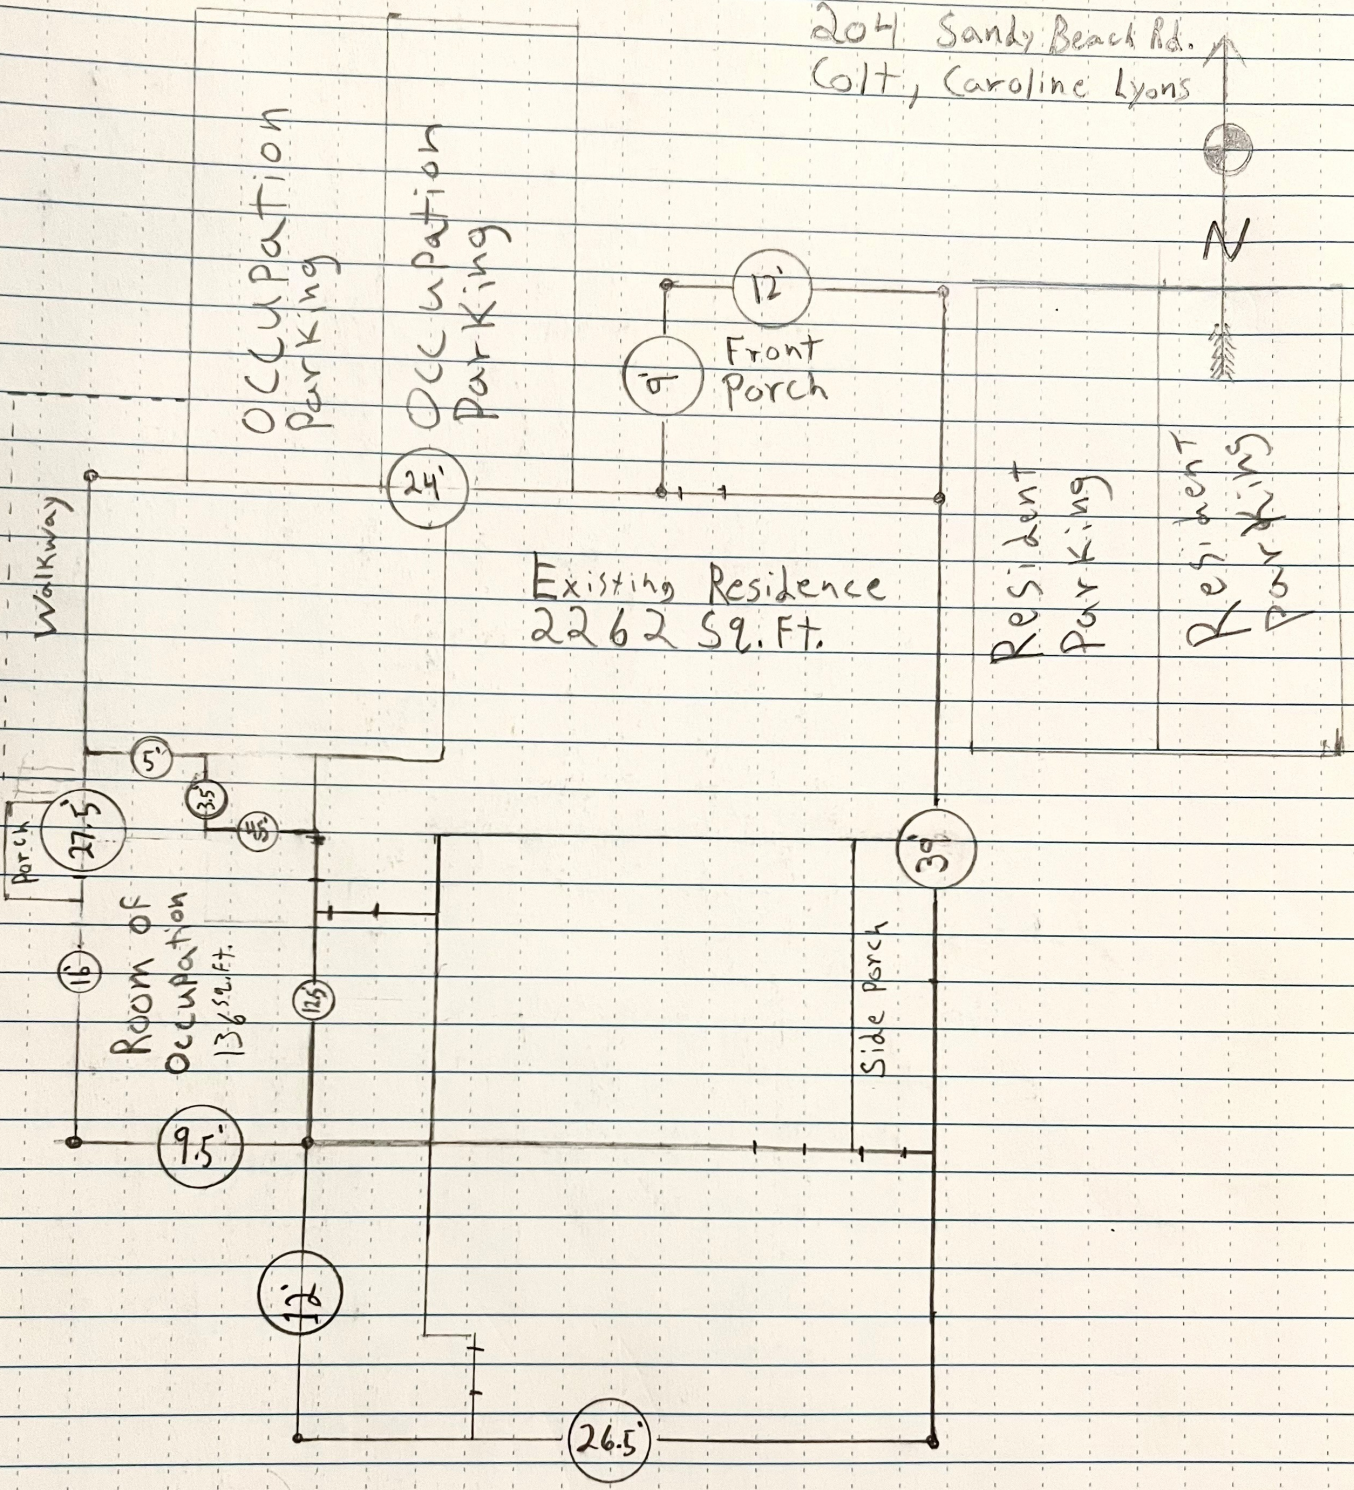 204 Sandy Beach Rd.
Colt, Caroline Lyons
N
Occupation
Parking
Occupation
Parking
12'
9'
Front
Porch
24'
Walkway
Existing Residence
2262 Sq.Ft.
Resident
Parking
Resident
Parking
5'
3.5'
27.5'
Porch
39'
16'
Room of
Occupation
136 sq.ft.
12.5'
Side Porch
9.5'
12'
26.5'